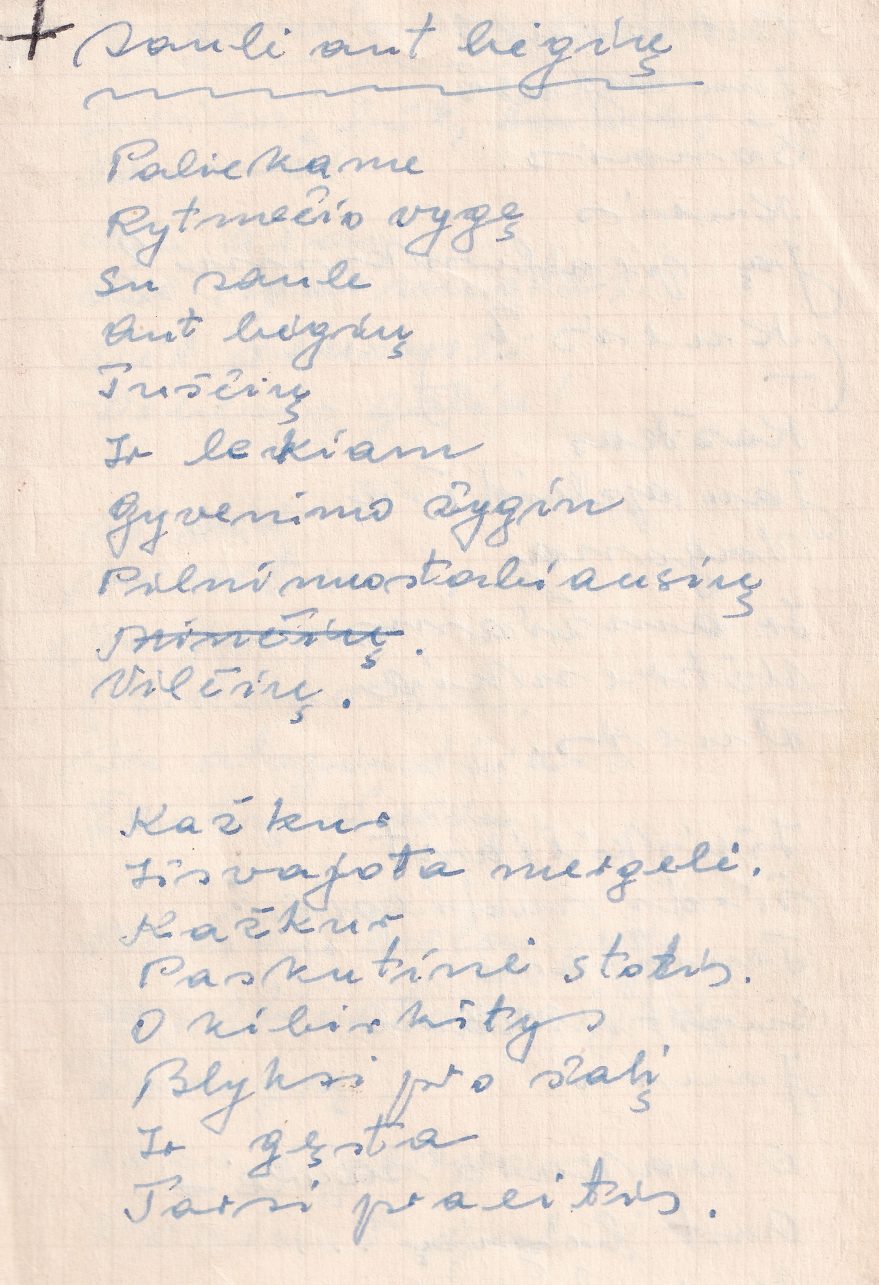 Saulė ant bėgių
Paliekame
Rytmečio vygę
Su saule
Ant bėgių
Tuščių
Ir lekiam
Gyvenimo žygin
Pilni nuostabiausių
Minčių.
Vilčių.
Kažkur
Išsvajota mergelė.
Kažkur
Paskutinė stotis.
O kibirkštys
Blyksi pro šalį
Ir gęsta
Tarsi praeitis.